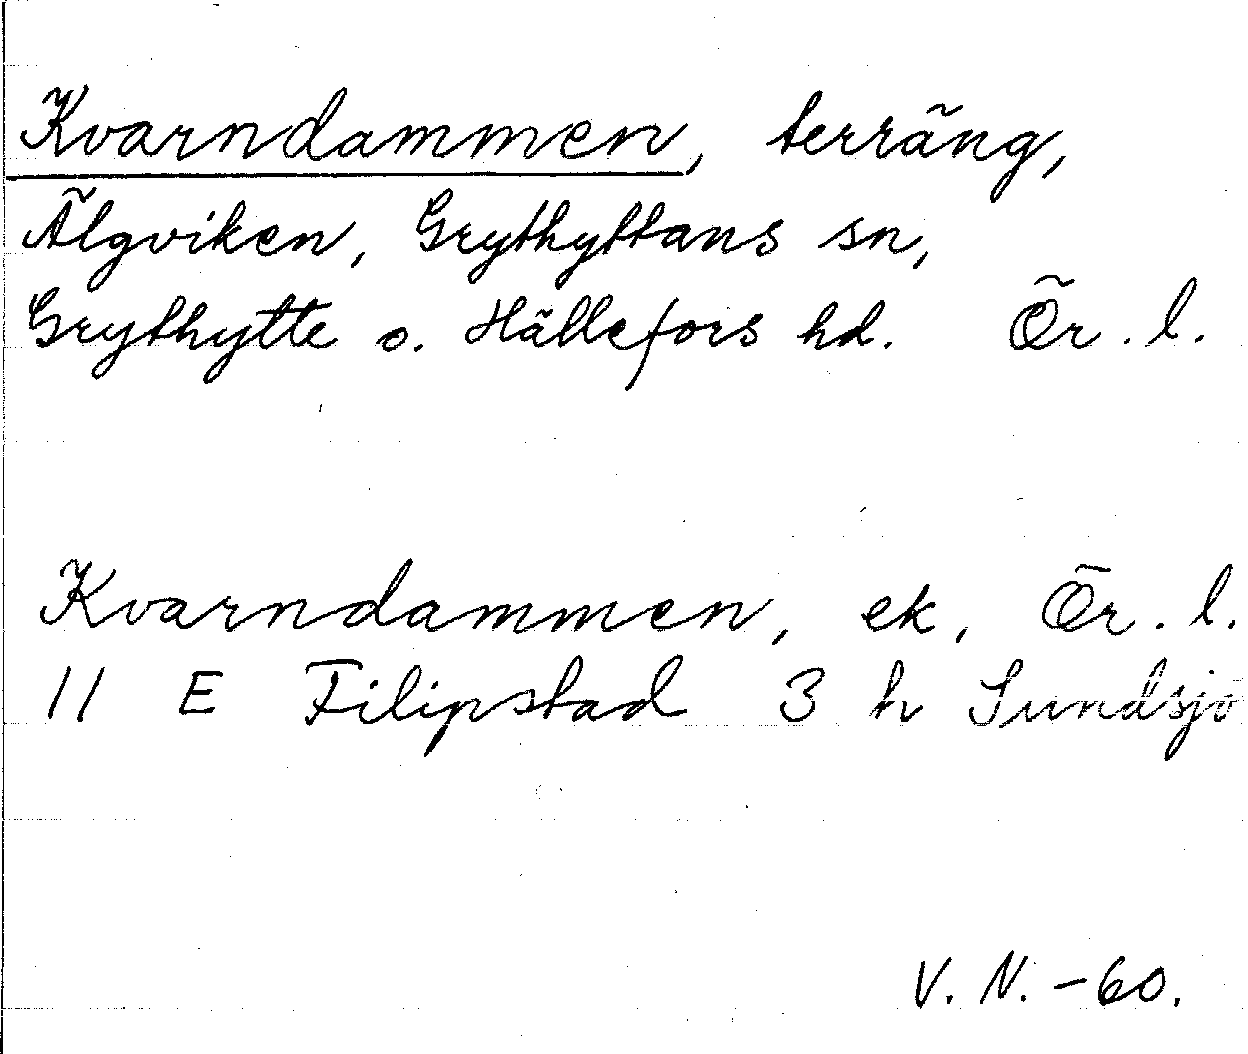 Kvarndammen, terräng,
Älgviken, Grythyttans sn,
Grythytte o. Hällefors hd. Ör. l.
Kvarndammen, ek, Ör. l.
11 E Filipstad 3 h Sundsjö
V. N. -60.